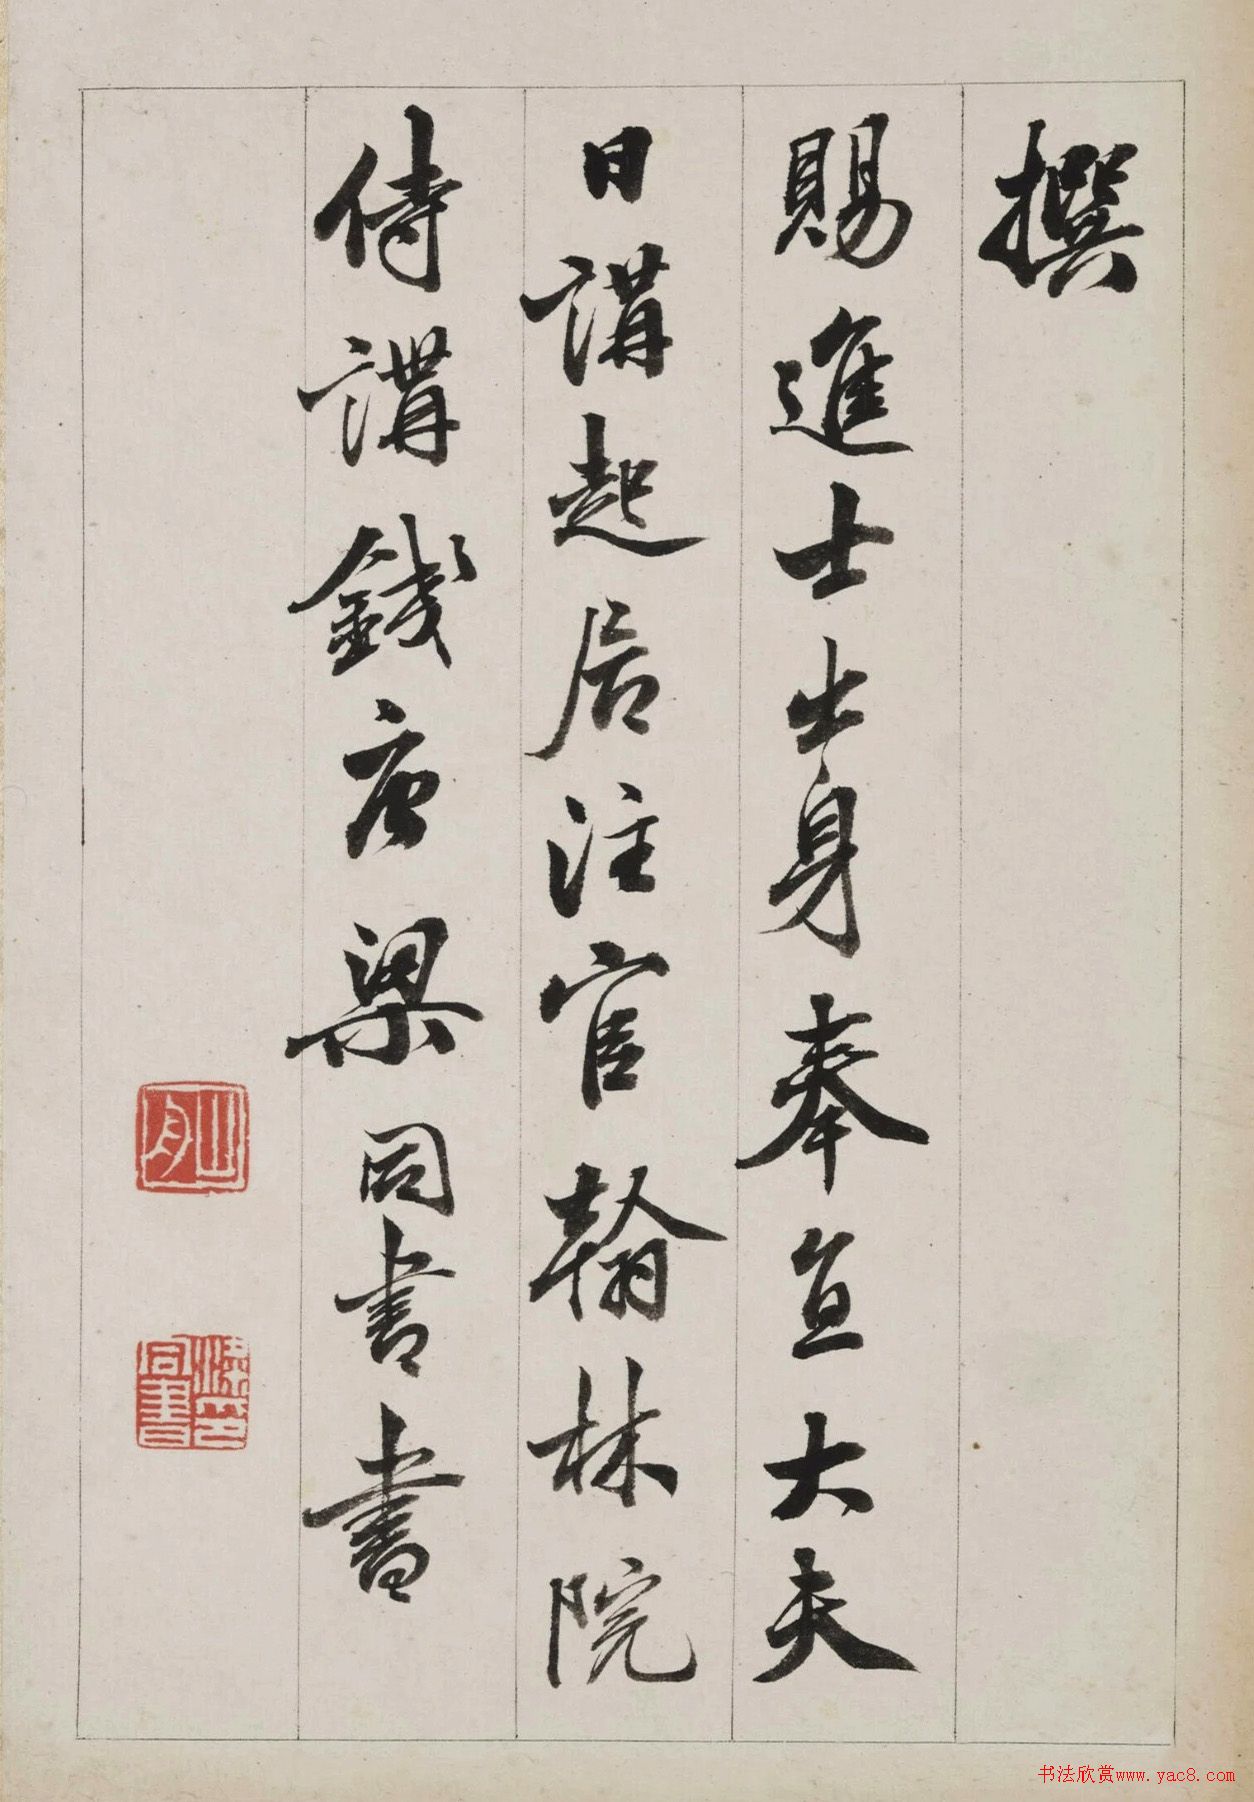 撰
賜進士出身奉直大夫
日講起居注官翰林院
侍講錢唐梁同書書
山舟
梁同書印
书法欣赏www.yac8.com